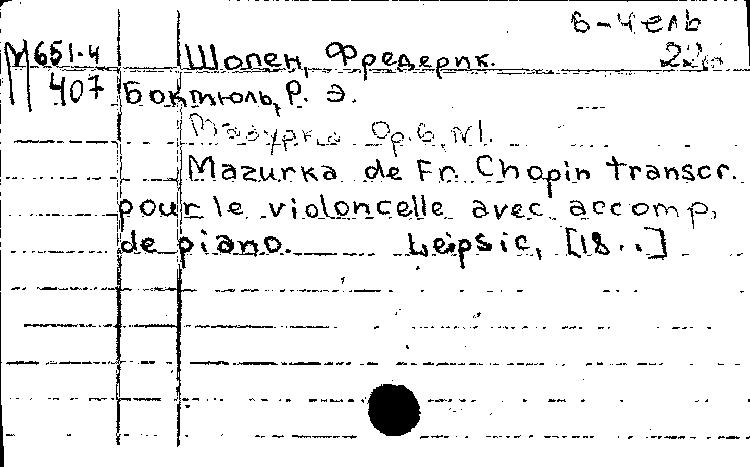 в-чель
М651.4 Шопен, Фредерик.
407 Бокмюль, Р. Э.
Мазурка Op.6, N1.
Mazurka de Fr. Chopin transcr.
pour le violoncelle avec accomp.
de piano. Leipsic, [18..]